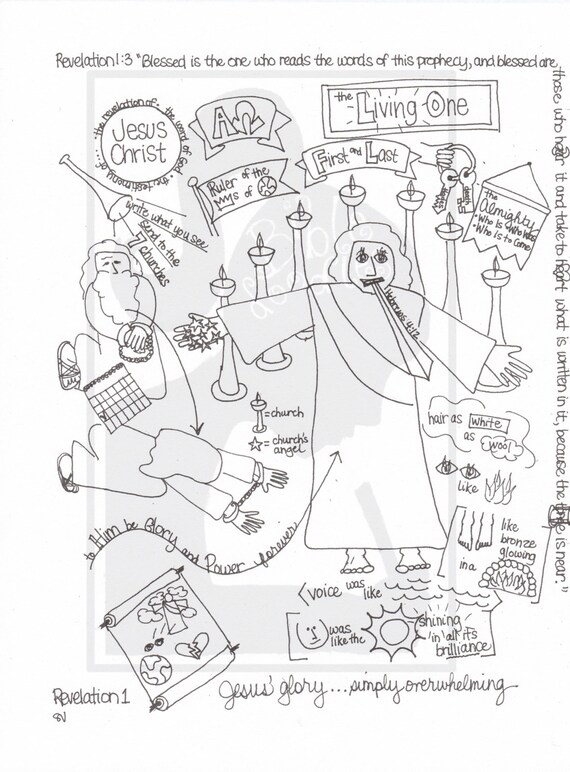 Revelation 1:3 "Blessed is the one who reads the words of this prophecy, and blessed are
those who hear it and take to heart what is written in it, because the time is near."
the revelation of... the word of God... the testimony of...
Jesus
Christ
ΑΩ
the Living One
First and Last
Ruler of the
of
The
Almighty
• Who Is • Who Was
• Who is to Come
write what you see
send to the
7 churches
Hebrews 4:12
= church
= church's
angel
hair as white
as wool
like
like
bronze
glowing
in a
to Him be Glory and Power forever
voice was like
was
like the
shining
in all its
brilliance
Revelation 1
Jesus' glory... simply overwhelming